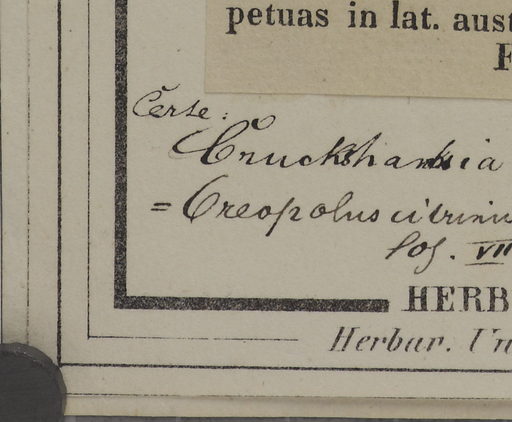 petuas in lat. aust
F
Certe:
Cruckshanksia
= Oreopolus citrinus
pos. VII
HERB
Herbar. Un